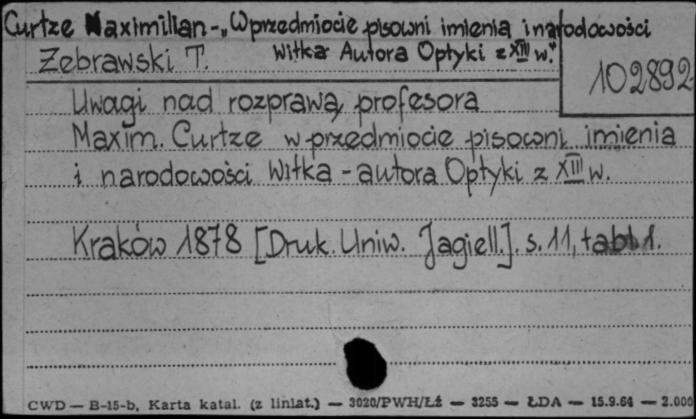 Curtze Maximilian - „W przedmiocie pisowni imienia i narodowości
Witka Autora Optyki z XIII w."
Zebrawski T.
102892
Uwagi nad rozprawą profesora
Maxim. Curtze w przedmiocie pisowni imienia
i narodowości Witka - autora Optyki z XIII w.
Kraków 1878 [Druk. Uniw. Jagiell.]. s. 11, tabl. 1.
CWD — B-15-b, Karta katal. (z liniat.) — 3020/PWH/Łź — 3255 — ŁDA — 15.9.64 — 2.000